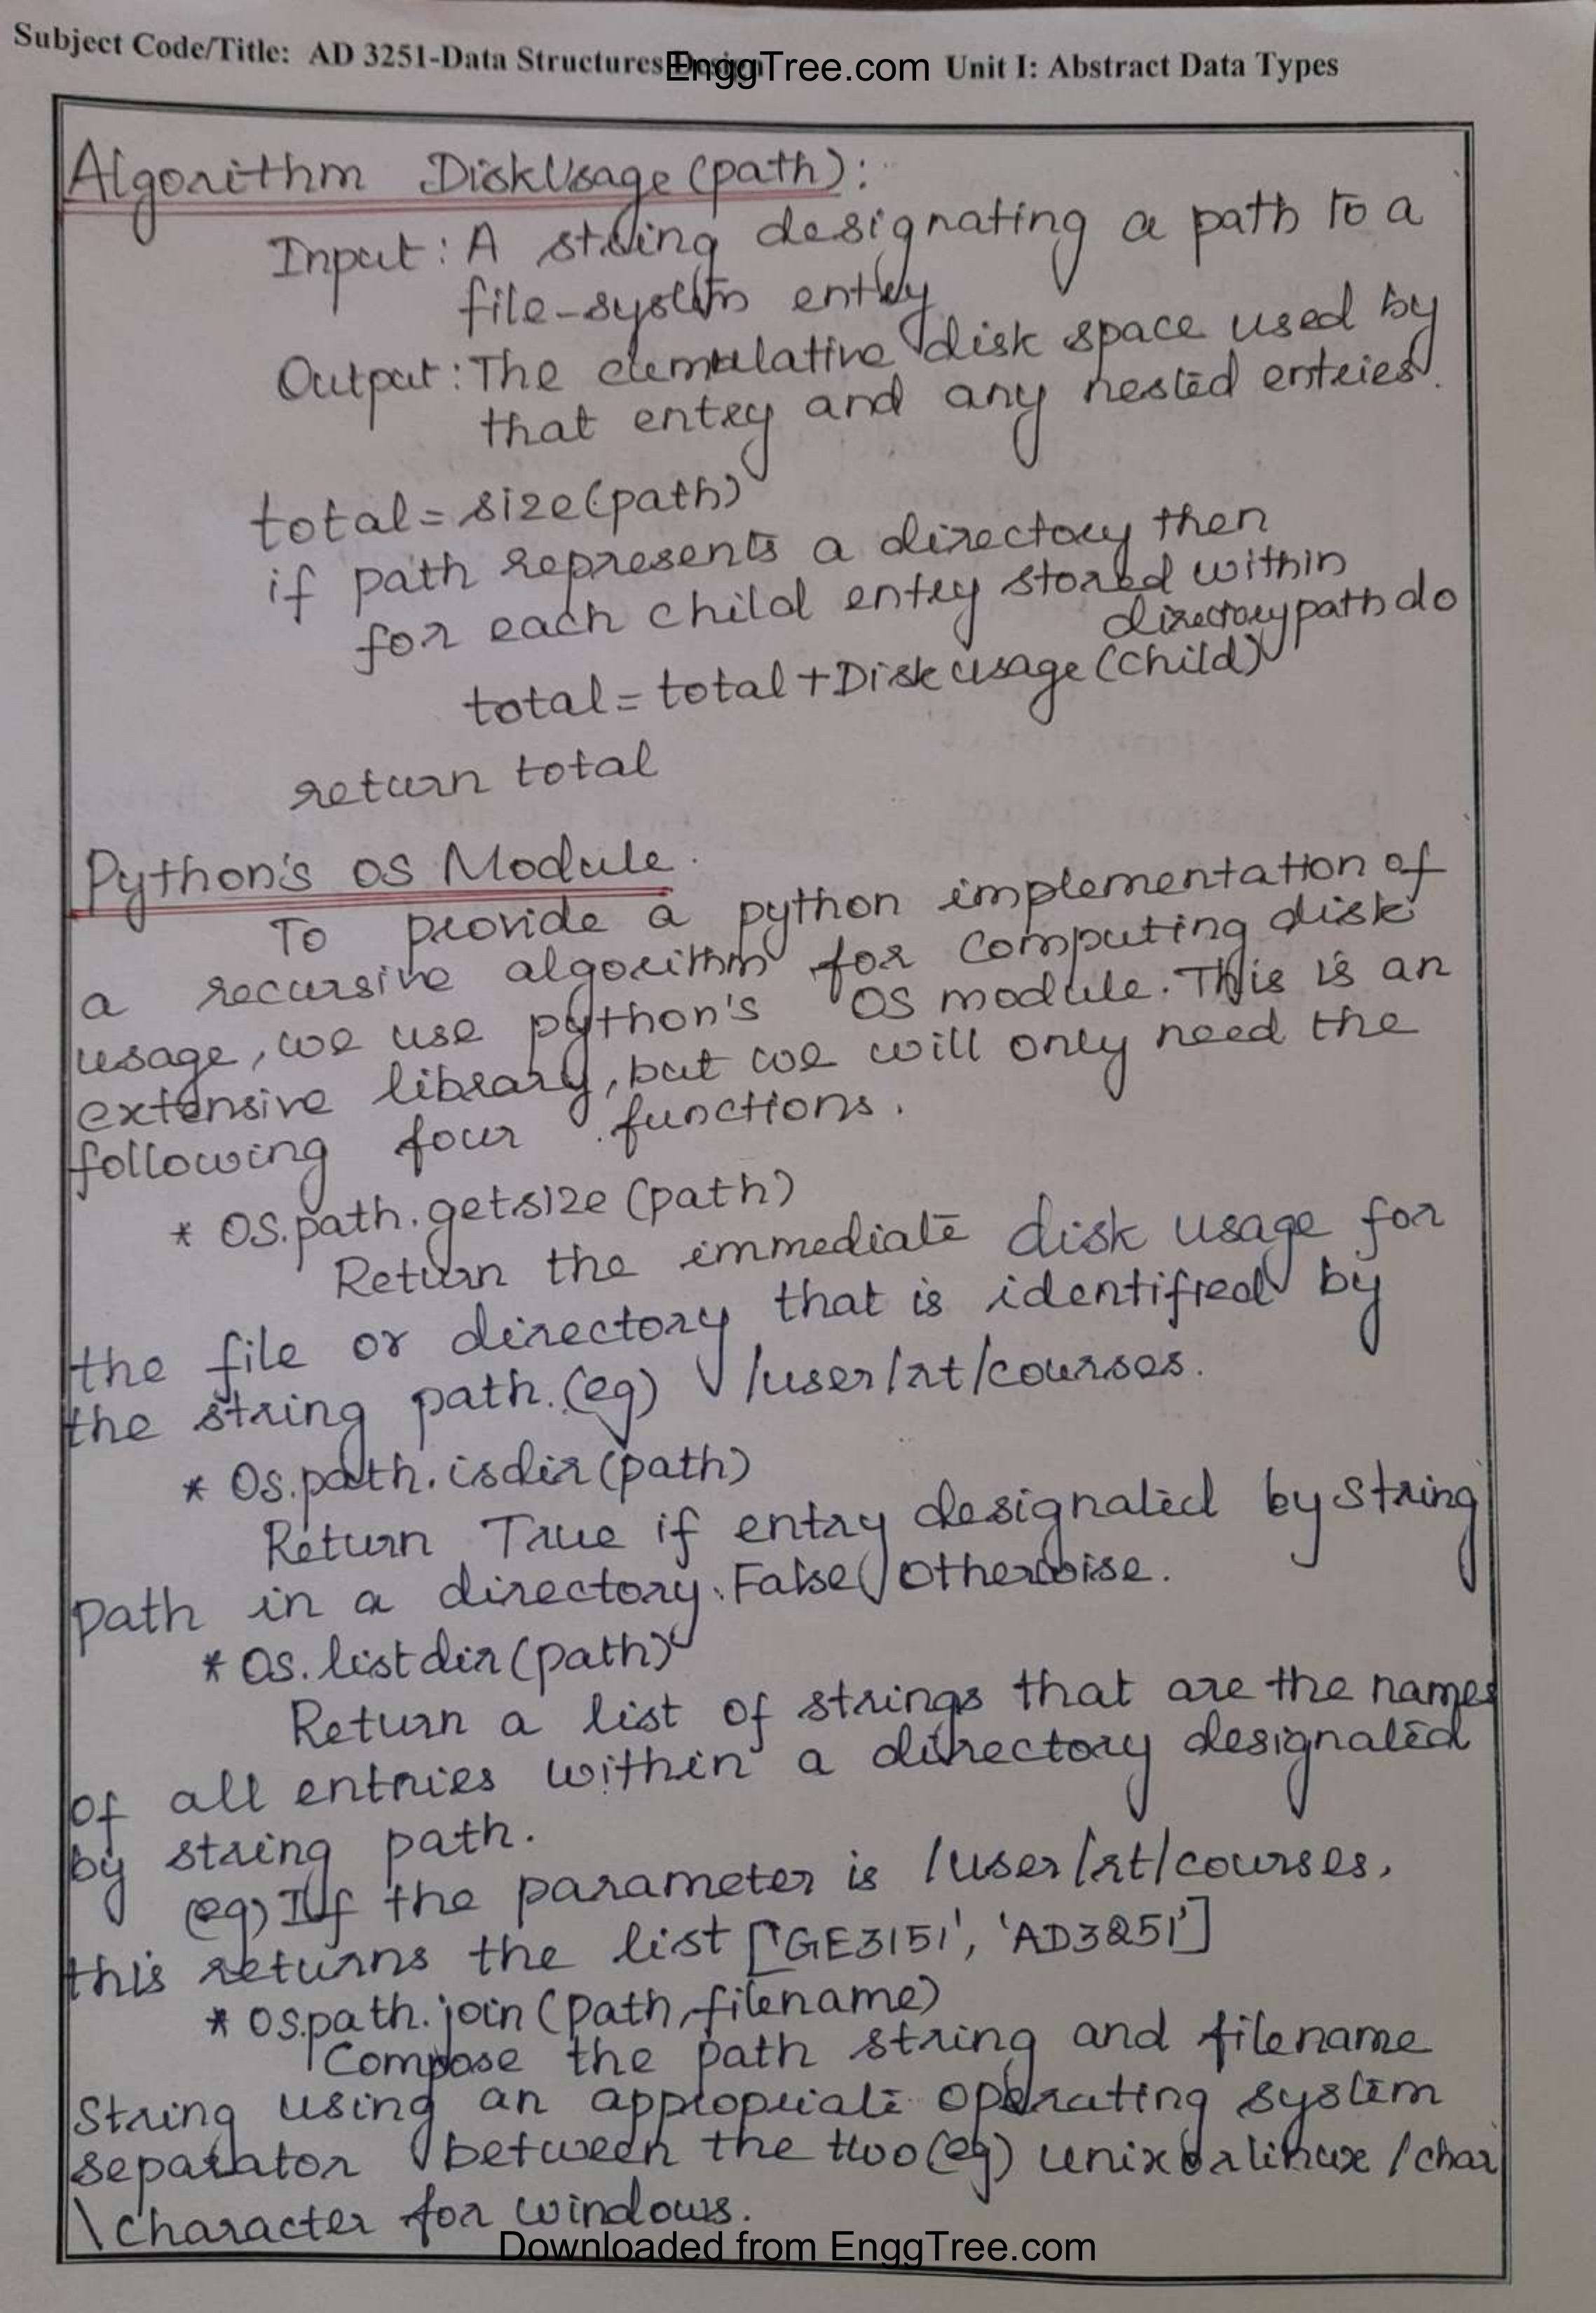 Subject Code/Title: AD 3251-Data Structures Design EnggTree.com Unit I: Abstract Data Types
Algorithm DiskUsage(path):
Input: A string designating a path to a
file-system entry
Output: The cumulative disk space used by
that entry and any nested entries.
total = size(path)
if path represents a directory then
for each child entry stored within
directory path do
total = total + Disk usage (child)
return total
Python's OS Module.
To provide a python implementation of
a recursive algorithm for computing disk
usage, we use python's OS module. This is an
extensive library, but we will only need the
following four functions.
* OS.path.getsize (path)
Return the immediate disk usage for
the file or directory that is identified by
the string path. (eg) /user/rt/courses.
* Os.path.isdir(path)
Return True if entry designated by string
path in a directory. False otherwise.
* Os.listdir(path)
Return a list of strings that are the names
of all entries within a directory designated
by string path.
(eg) If the parameter is /user/rt/courses,
this returns the list ['GE3151', 'AD3251']
* Os.path.join(path, filename)
Compose the path string and filename
String using an appropriate operating system
separator between the two (eg) unix or linux / char
\ character for windows.
Downloaded from EnggTree.com